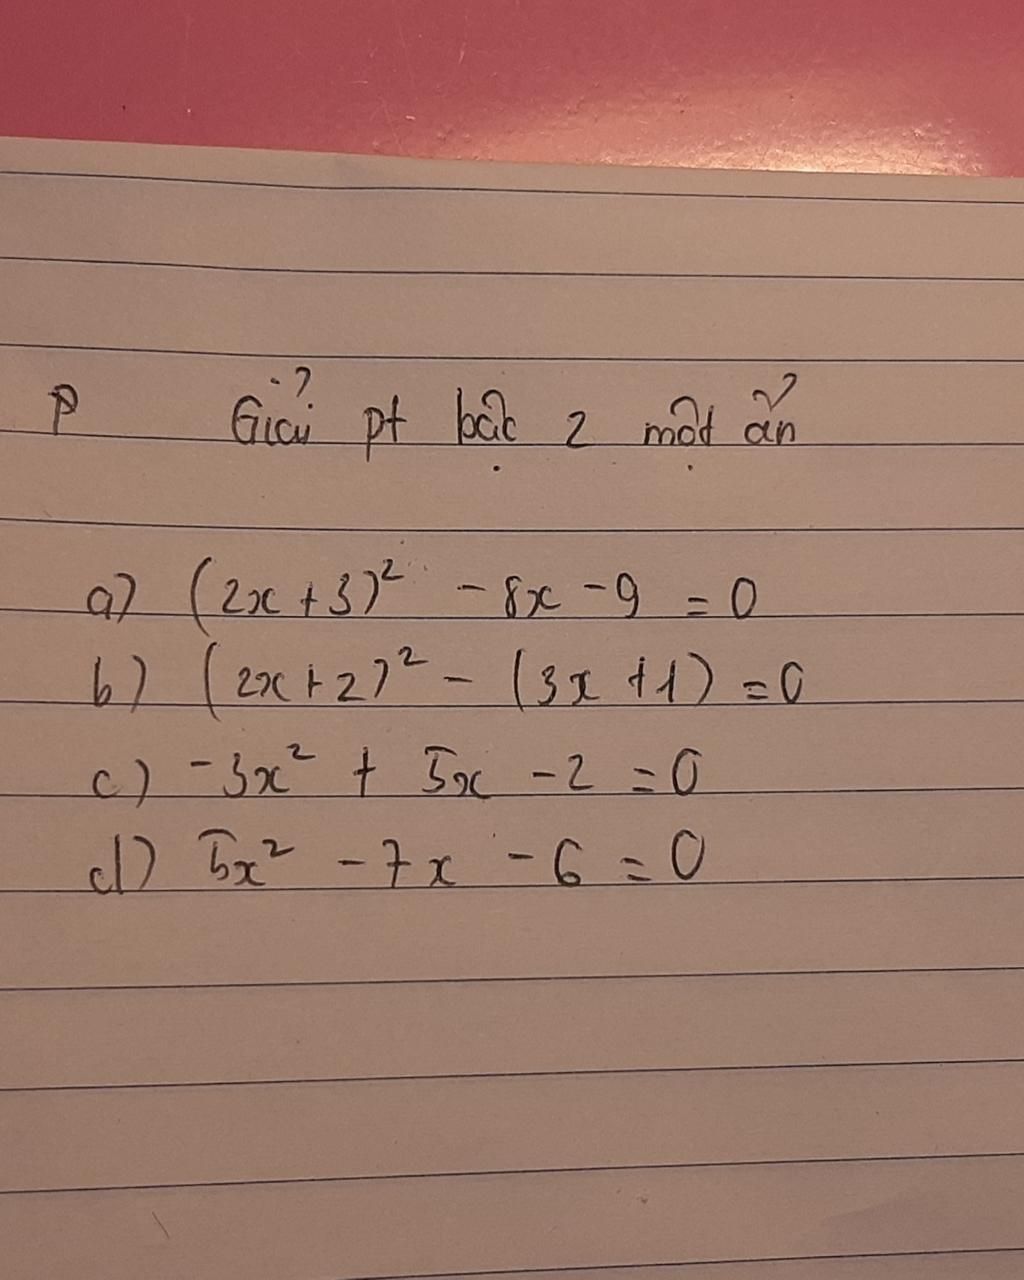 P Giải pt bậc 2 một ẩn
a) (2x + 3)² - 8x - 9 = 0
b) (2x + 2)² - (3x + 1) = 0
c) -3x² + 5x - 2 = 0
d) 5x² - 7x - 6 = 0